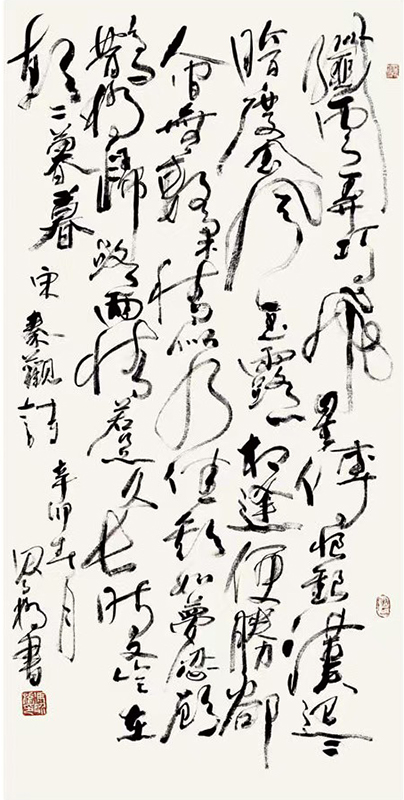 纖雲弄巧飛星傳恨銀漢迢〻
暗度金風玉露一相逢便勝卻
人間無數柔情似水佳期如夢忍顧
鵲橋歸路兩情若是久長時又豈在
朝〻暮暮
宋秦觀詩
辛卯春月
書